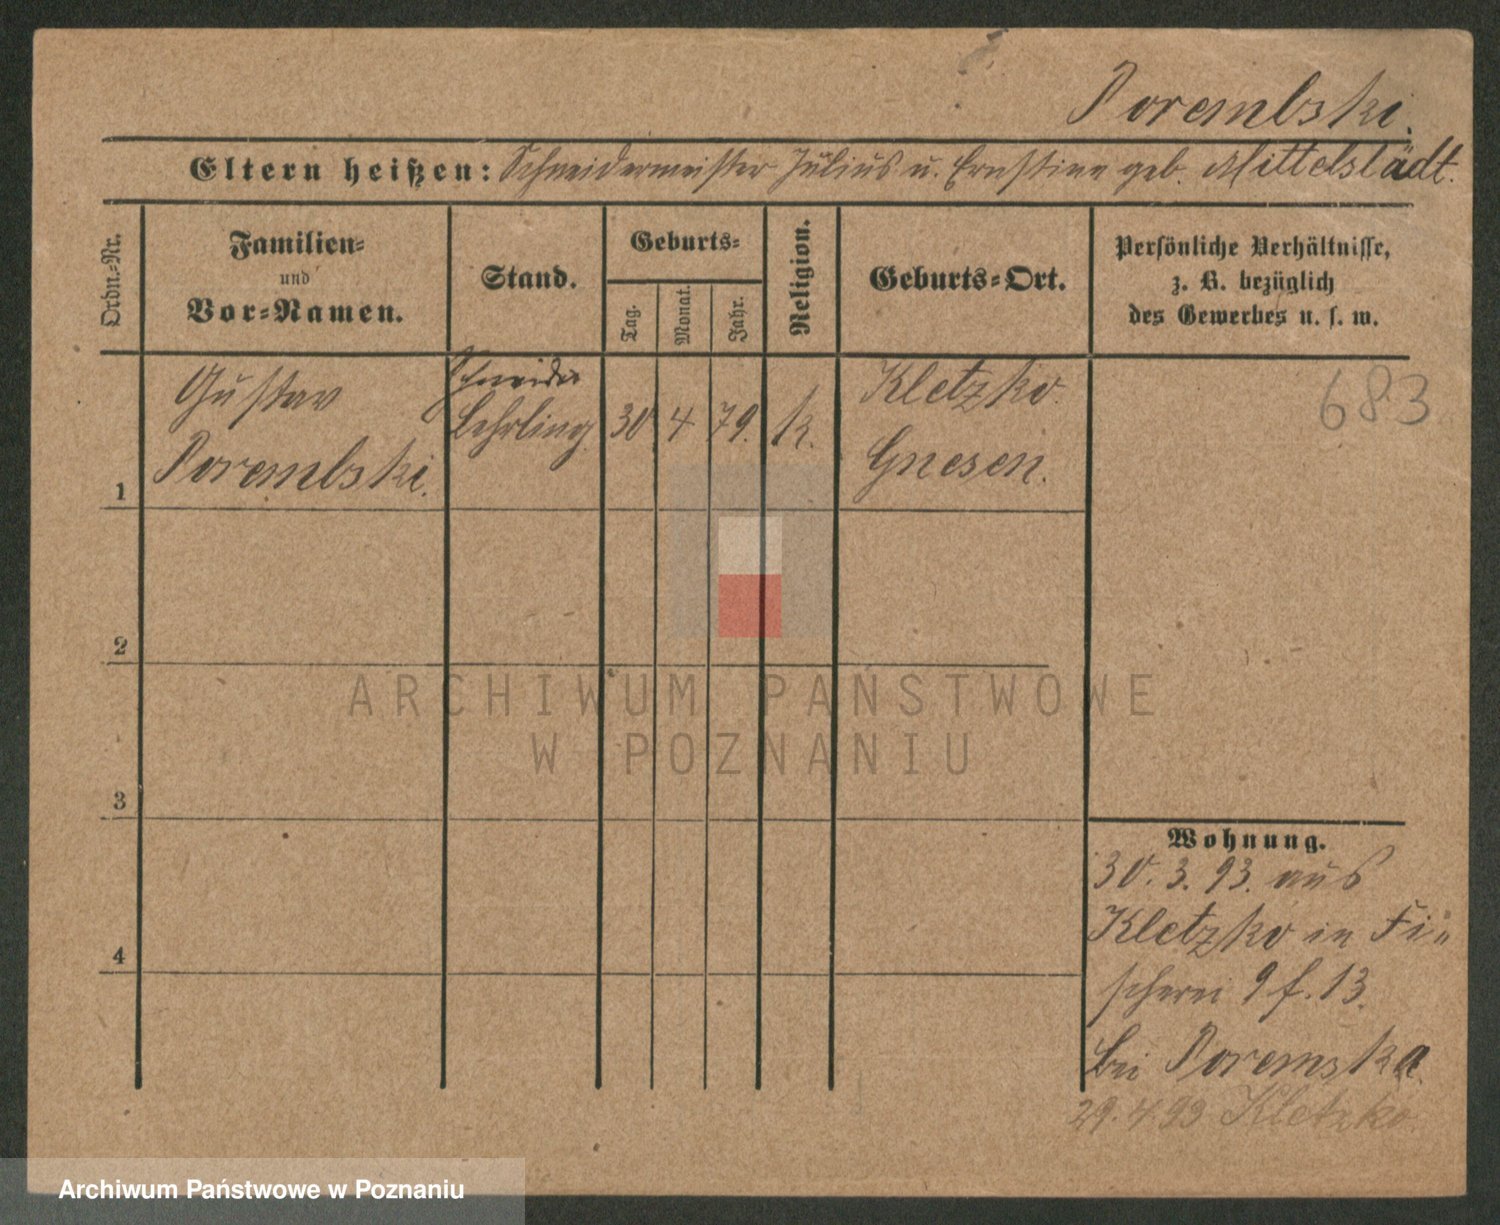 Porembski.
Eltern heißen: Schneidermeister Julius u. Ernstine geb. Mittelstädt.
Ordn.-Nr.
Familien-
und
Vor-Namen.
Stand.
Geburts-
Tag.
Monat.
Jahr.
Religion.
Geburts-Ort.
Persönliche Verhältnisse,
z. B. bezüglich
des Gewerbes u. s. w.
1
Gustav
Porembski.
Schneider
Lehrling
30
4
79.
k.
Kletzko.
Gnesen.
683
2
3
4
ARCHIWUM PAŃSTWOWE
W POZNANIU
Wohnung.
30.3.93. aus
Kletzko in Fi-
scherei 9 f. 13.
bei Poremska.
29.4.93 Kletzko.
Archiwum Państwowe w Poznaniu